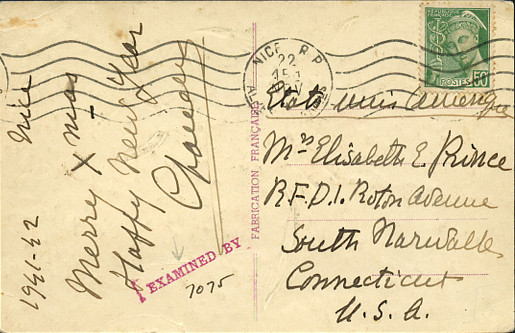 Nice
1941-42
Merry Xmas
Happy New Year
EXAMINED BY
7075
FABRICATION FRANÇAISE
NICE R.P.
22
POSTES
50
Etats unis Amérique
Mrs Elisabeth E. Prince
R.F.D.1. Roton Avenue
South Norwalk
Connecticut
U.S.A.